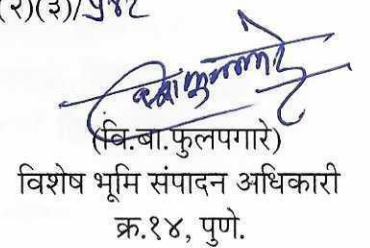 (२)(३)/
(वि.बा.फुलपगारे)
विशेष भूमि संपादन अधिकारी
क्र.१४, पुणे.